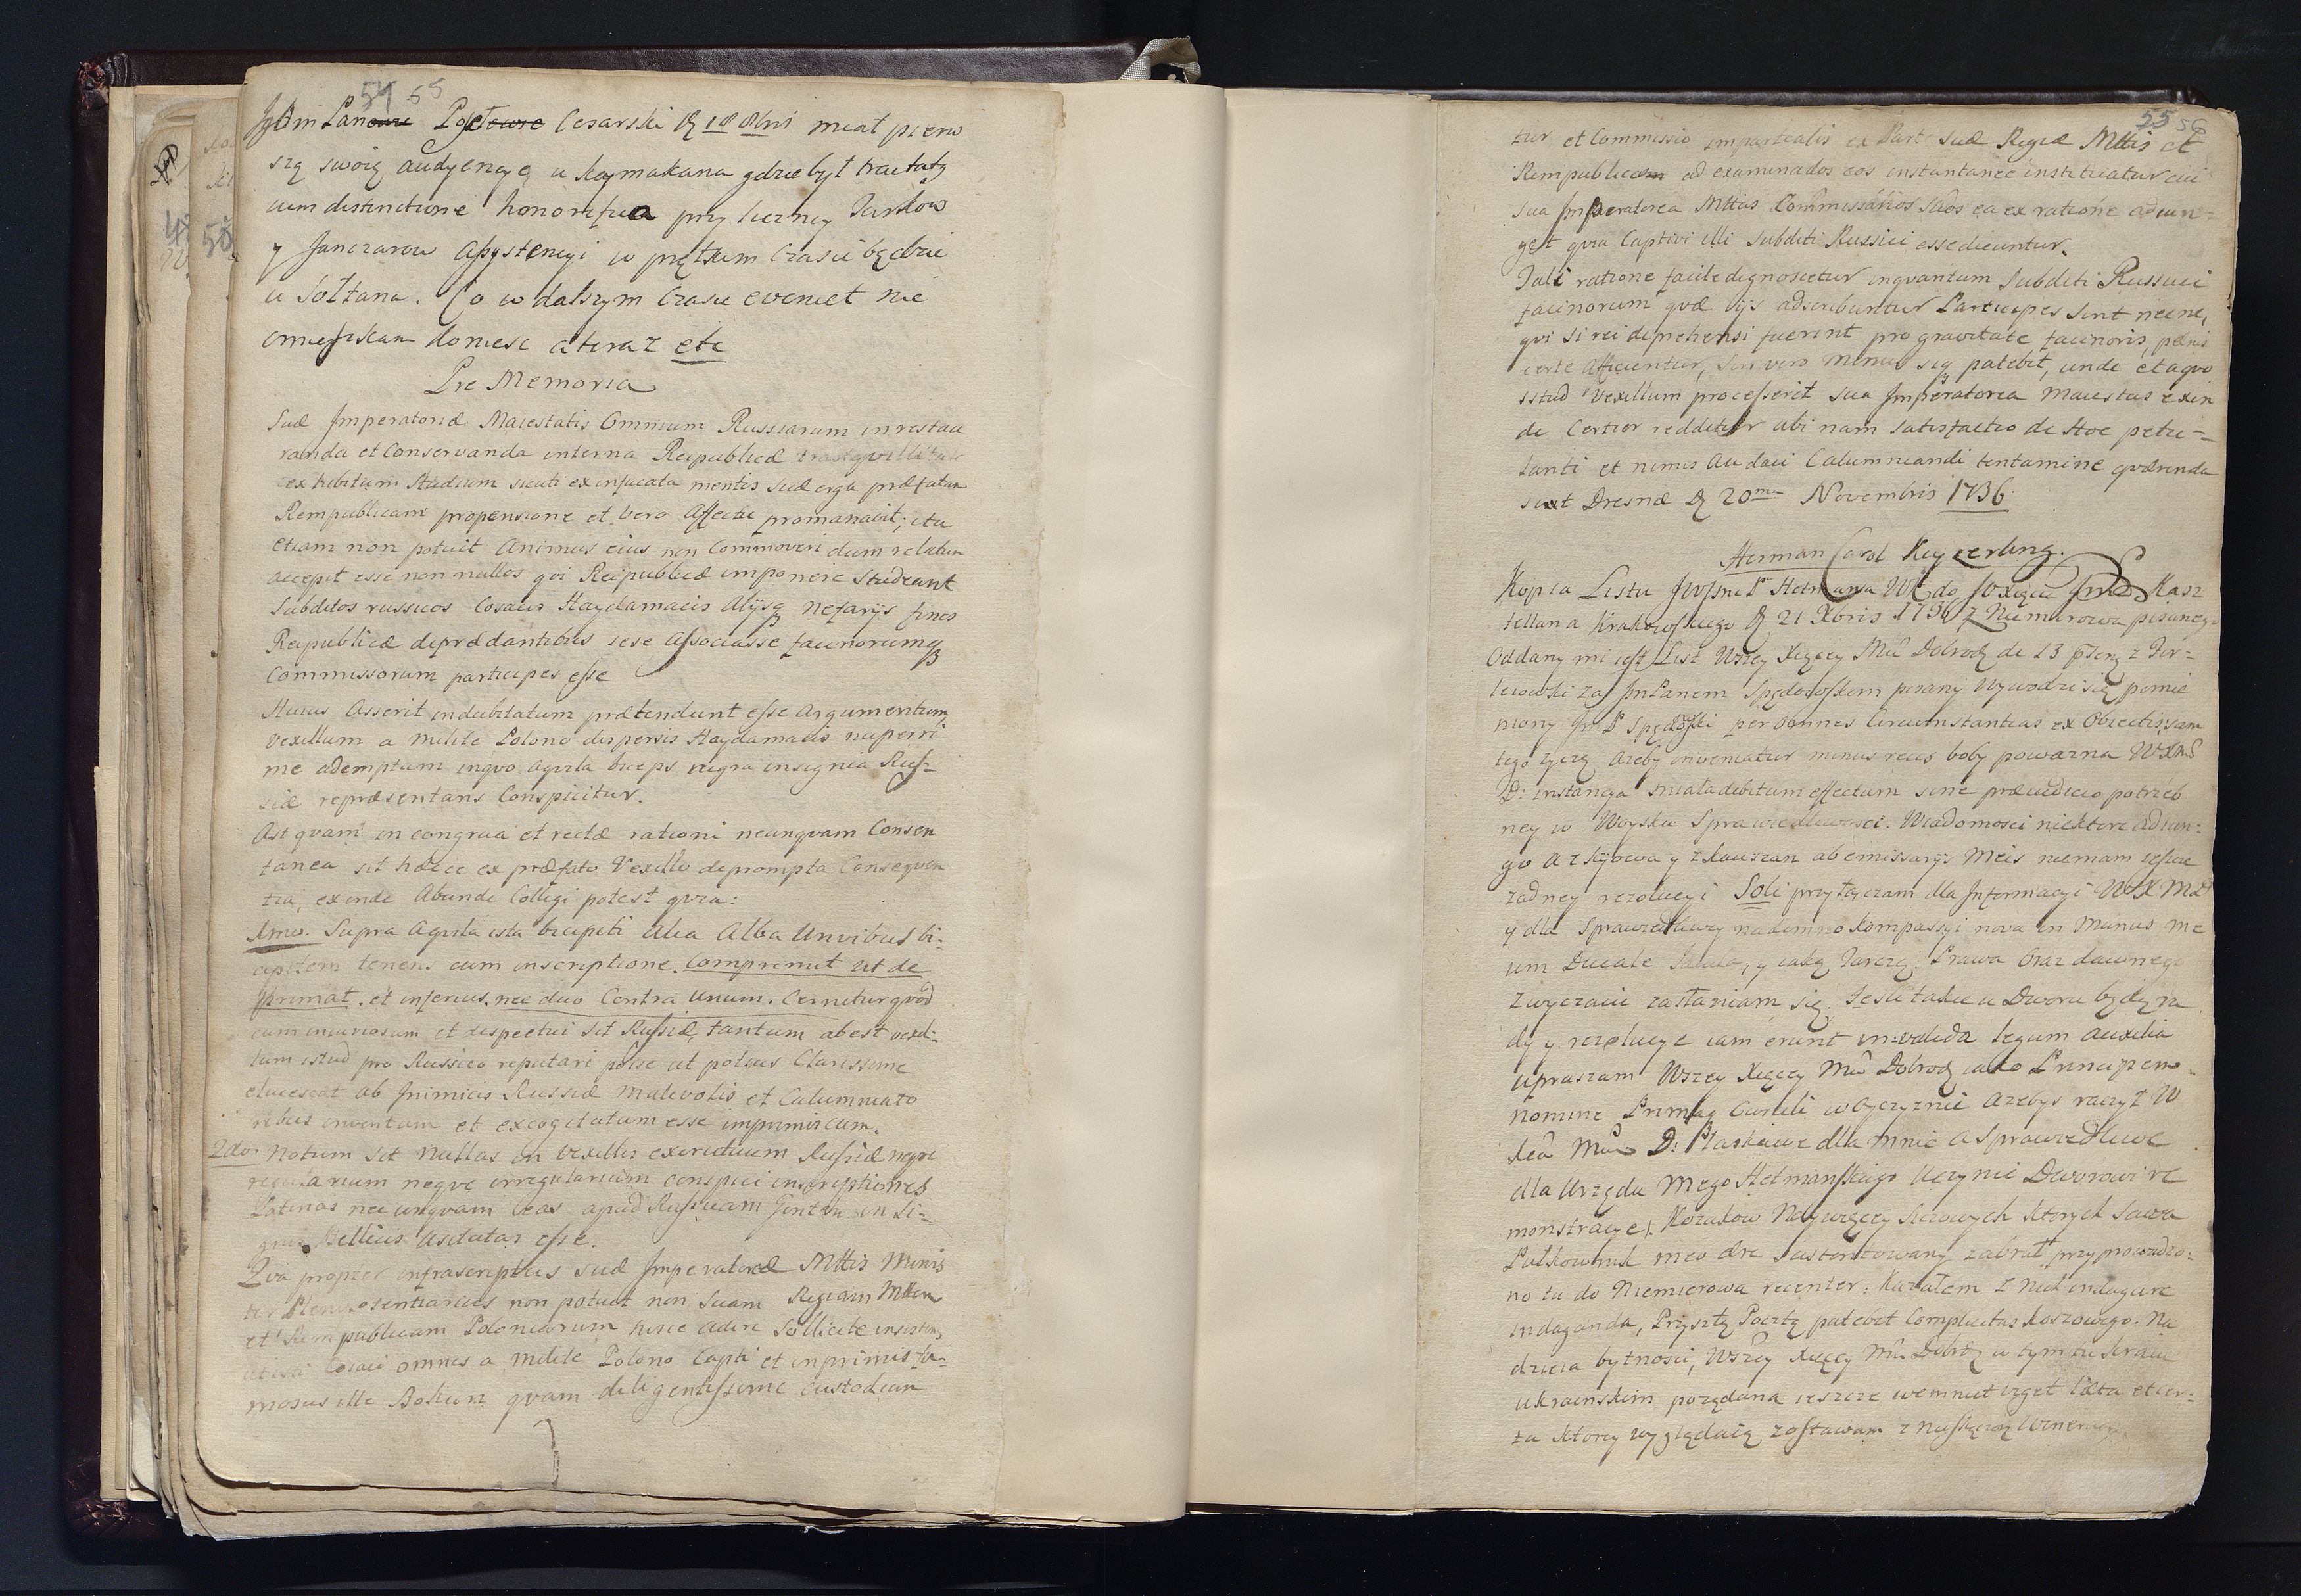 54 55
JgoM Pan Poseł Cesarski d 18 8bris miał pierw
szą swoię audyencyę u Kaymakana gdzie był tractatą
cum distinctione honorifica przy liczney Turków
y Janczarow Assystencyi w prętkim czasie będzie
u Sołtana. Co w dalszym Czasie eveniet nie
omieszkam donieść a teraz etc
Pro Memoria
Suæ Imperatoriæ Maiestatis Omnium Russiarum in restau
randa et Conservanda interna Reipublicæ tranqvillitate
exhibitum Studium sicuti ex infucata mentis suæ erga præfatam
Rempublicam propensione et vero Affectu promanavit; ita
etiam non potuit Animus eius non Commoveri dum relatum
accepit esse non nullos qvi Reipublicæ imponere Studeant
Subditos russicos Cosacis Haydamacis Alijsq nefarijs fines
Reipublicæ deprædantibus sese Associasse facinorumq
Commissorum participes esse
Huius Asserti indubitatum prætendunt esse Argumentum
Vexillum a Milite Polono dispersis Haydamacis nuperri
me ademptum inqvo Aqvila biceps nigra insignia Rus=
siæ repræsentans Conspicitur.
Ast qvam in congrua et rectæ rationi neunqvam Consen
tanea sit hæcce ex præfato Vexillo deprompta Conseqven
tia, exinde Abunde Colligi potest qvia:
1mo. Supra Aqvila ista bicipiti Alia Alba Unvibus bi=
cipitem tenens cum inscriptione. Compremit ut de
primat. et inferius. nec duo Contra unum. Cernitur qvod
cum iniuriosum et despectui sit Russiæ, tantum abest vexil=
lum istud pro Russico reputari posse ut potius Clarissime
elucescat ab Inimicis Russiæ malevolis et Calumniato
ribus inventum et excogitatum esse imprimis cum.
2do. Notum sit Nullas in Vexillis exercituum Russiæ neqve
regularium neqve irregularium conspici inscriptiones
Latinas nec unqvam eas apud Russicam Gentem in Si=
gnis Bellicis Usitatas esse.
Qva propter infrascriptus suæ Imperatoriæ Mttis Minis
ter Plenipotentiarius non potuit non Suam Regiam Mttem
et Rempublicam Poloniarum hisce Adire Sollicite insistens
ut isti Cosaci omnes a Milite Polono Capti et inprimis fa=
mosus ille Bohun qvam diligentissime custodian
55 56
tur et Commissio impartialis ex Parte Suæ Regiæ Mttis et
Rempublicam ad examinados eos instantanee instituatur cui
Sua Imperatorea Mttas Commissarios Suos ea ex ratione adiun=
get qvia Captivi illi Subditi Russici esse dicuntur.
Tali ratione facile dignoscetur inqvantum Subditi Russici
facinorum qvæ ijs adscribuntur Participes sint necne,
qvi si rei deprehensi fuerint pro gravitate facinoris, pænis
certe Afficientur, Sin vero Minus sic patebit, unde et aqvo
istud Vexillum processerit sua Imperatorea Maiestas exin
de Certior redditur ubi nam Satisfactio de Hoc petu=
lanti et nimis Audaci Calumniandi tentamine qværenda
sit Dresnæ d 20ma Novembris 1736
Herman Carol Keyzerling.
Kopia Listu JWJmci P Hetmana WK do JO Xięcia Jmci Kasz
tellana Krakowskiego d 21 Xbris 1736 z Niemirowa pisanego
Oddany mi iest List Wszey Xięcey Mci Dobrodz de 13 praes z Ter=
lecowski za JmPanem Spędowskim pisany Wywodzi się pomie
niony Jm P Spędowski per omnes Circumstantias ex Obiectis sam
tego życzę Ażeby inveniatur minus reus boby powazna WXMci
D: instancya miała debitum effectum sine præiudicio potrzeb
ney w Woysku Sprawiedliwosci. Wiadomosci niektore adiun=
go a z Kijowa y z Kauszan ab emissarijs Meis niemam ieszcze
zadney rezolucyi Soli przyłączam dla Informacyi WXMci
y dla Sprawiedliwey nademno Kompassyi nova in Munus me
um Ducale Iacula, y iaką Tarczą Prawa Oraz dawnego
Zwyczaiu zasłaniam się. Jesli takie u Dworu będą ra
dy y rezolucye iam erunt invalida legum auxilia
upraszam Wszey Xięcey Mci Dobrodz iako Principem
nomine Primae Curuli w Oyczyznie Azebys raczył W
Xca Mci D: łaskawe dla mnie a Sprawiedliwe
dla Urzędu Mego Hetmanskiego Uczynic Dworowi re
monstracye. Kozakow Naywięcey Siczowych ktorych Sawa
Pułkownik meo ære Sustentowany zabrał przyprowadzo=
no tu do Niemierowa recenter: Kazałem z Nich indagare
indaganda, Przyszłą Pocztą patebit Complicitas Koszowego. Na
dzieia bytnosci, Wszey Xięcey Mci Dobrodz w tymtu kraiu
Ukrainskim pożądana ieszcze wemnie viget læta et cer=
ta ktorey wyglądaią zostawam z Nieskączoną Wenerac